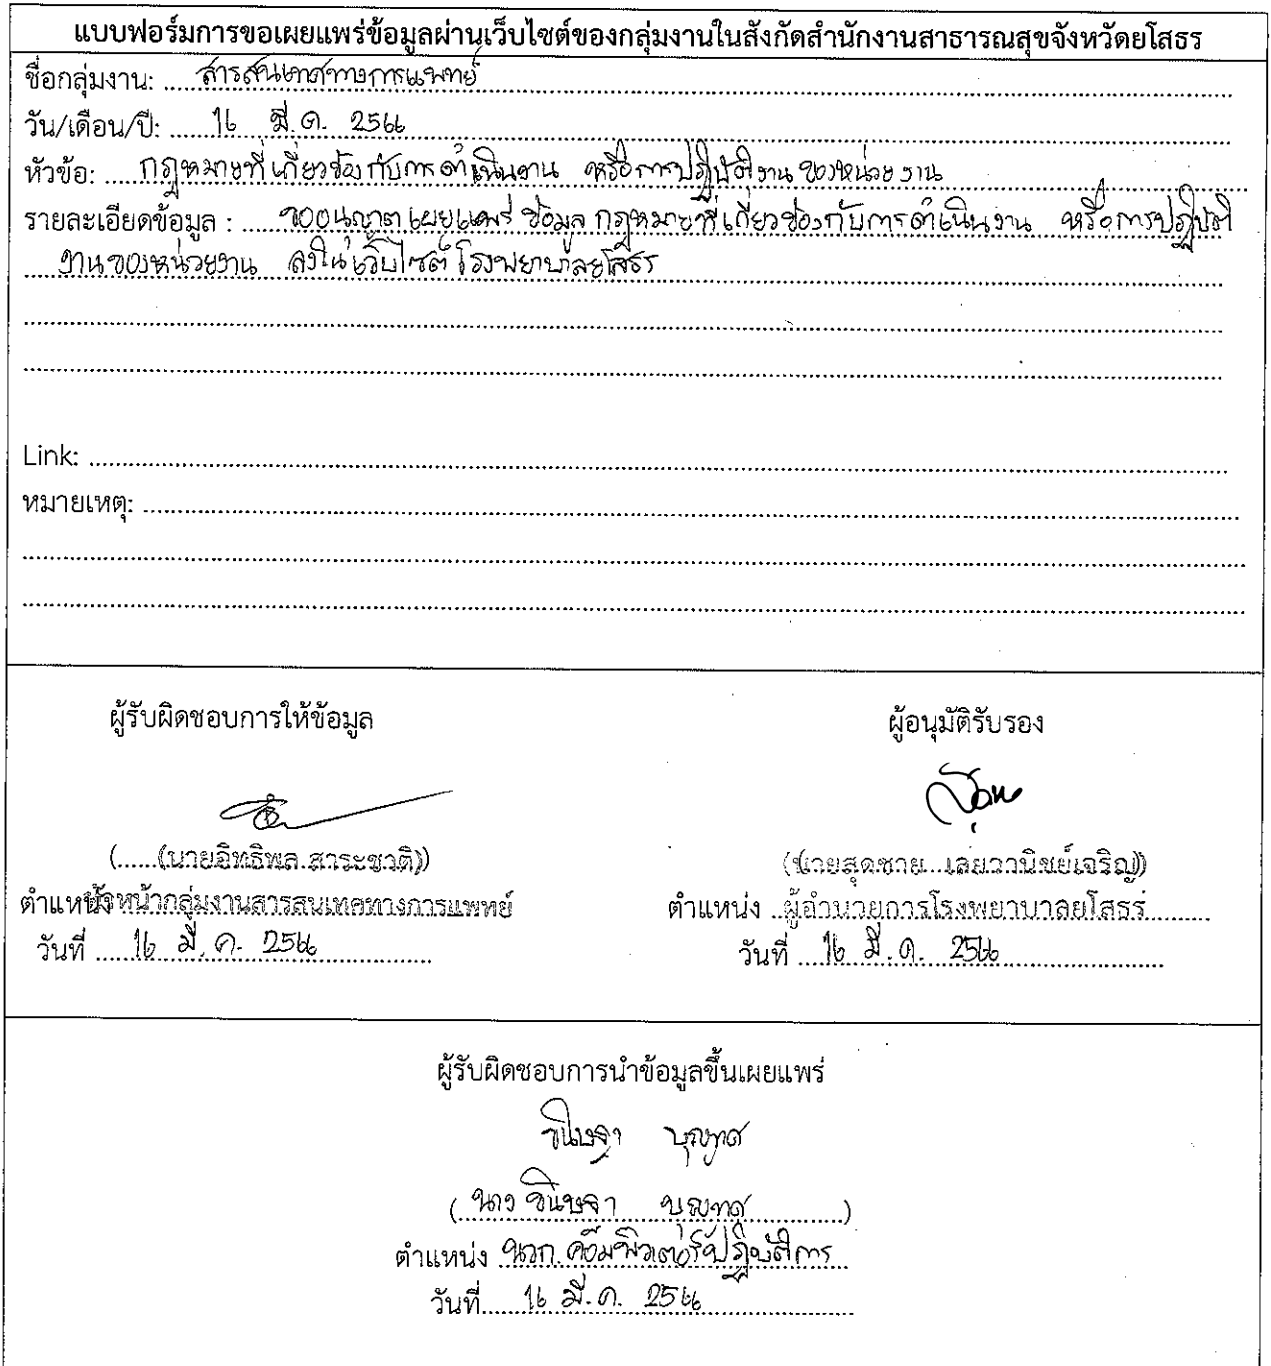 แบบฟอร์มการขอเผยแพร่ข้อมูลผ่านเว็บไซต์ของกลุ่มงานในสังกัดสำนักงานสาธารณสุขจังหวัดยโสธร
ชื่อกลุ่มงาน: สารสนเทศทางการแพทย์
วัน/เดือน/ปี: 16 มี.ค. 2566
หัวข้อ: กฎหมายที่เกี่ยวข้องกับการดำเนินงาน หรือการปฏิบัติงานของหน่วยงาน
รายละเอียดข้อมูล : ขออนุญาตเผยแพร่ ข้อมูล กฎหมายที่เกี่ยวข้องกับการดำเนินงาน หรือการปฏิบัติ
งานของหน่วยงาน ลงในเว็บไซต์ โรงพยาบาลยโสธร
Link:
หมายเหตุ:
ผู้รับผิดชอบการให้ข้อมูล ผู้อนุมัติรับรอง
(นายอิทธิพล สาระชาติ) (นายสุดชาย เลยวานิชย์เจริญ)
ตำแหน่ง หัวหน้ากลุ่มงานสารสนเทศทางการแพทย์ ตำแหน่ง ผู้อำนวยการโรงพยาบาลยโสธร
วันที่ 16 มี.ค. 2566 วันที่ 16 มี.ค. 2566
ผู้รับผิดชอบการนำข้อมูลขึ้นเผยแพร่
ขนิษฐา บุญทศ
(นาง ขนิษฐา บุญทศ)
ตำแหน่ง นวก.คอมพิวเตอร์ปฏิบัติการ
วันที่ 16 มี.ค. 2566